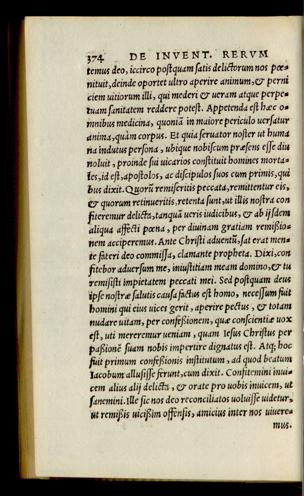 374 DE INVENT. RERVM
temus deo, iccirco postquam satis delictorum nos pœ=
nituit, deinde oportet ultro aperire animum, & perni
ciem uitiorum illi, qui mederi & ueram atque perpe=
tuam sanitatem reddere potest. Appetenda est hæc o=
mnibus medicina, quoniã in maiore periculo uersatur
anima, quàm corpus. Et quia seruator noster ut huma
na indutus persona, ubique nobiscum præsens esse diu
noluit, proinde sui uicarios constituit homines morta=
les, id est, apostolos, ac discipulos suos cum primis, qui
bus dixit. Quorũ remiseritis peccata, remittentur eis,
& quorum retinueritis, retenta sunt, ut illis nostra con
fiteremur delicta, tanquã ueris iudicibus, & ab ijsdem
aliqua affecti pœna, per diuinam gratiam remißio=
nem acciperemus. Ante Christi aduentũ, sat erat men=
te fiteri deo commissa, clamante propheta. Dixi, con
fitebor aduersum me, iniustitiam meam domino, & tu
remisisti impietatem peccati mei. Sed postquam deus
ipse nostræ salutis causa factus est homo, necessum fuit
homini qui eius uices gerit, aperire pectus, & totam
nudare uitam, per confeßionem, quæ conscientiæ uox
est, uti mereremur ueniam, quam Iesus Christus per
paßionē suam nobis impertire dignatus est. Atq; hoc
fuit primum confeßionis institutum, ad quod beatum
Iacobum allusisse ferunt, cum dixit. Confitemini inui=
cem alius alij delicta, & orate pro uobis inuicem, ut
sanemini. Ille sic nos deo reconciliatos uoluisse uidetur,
ut remißis uicißim offensis, amicius inter nos uiuere=
mus.